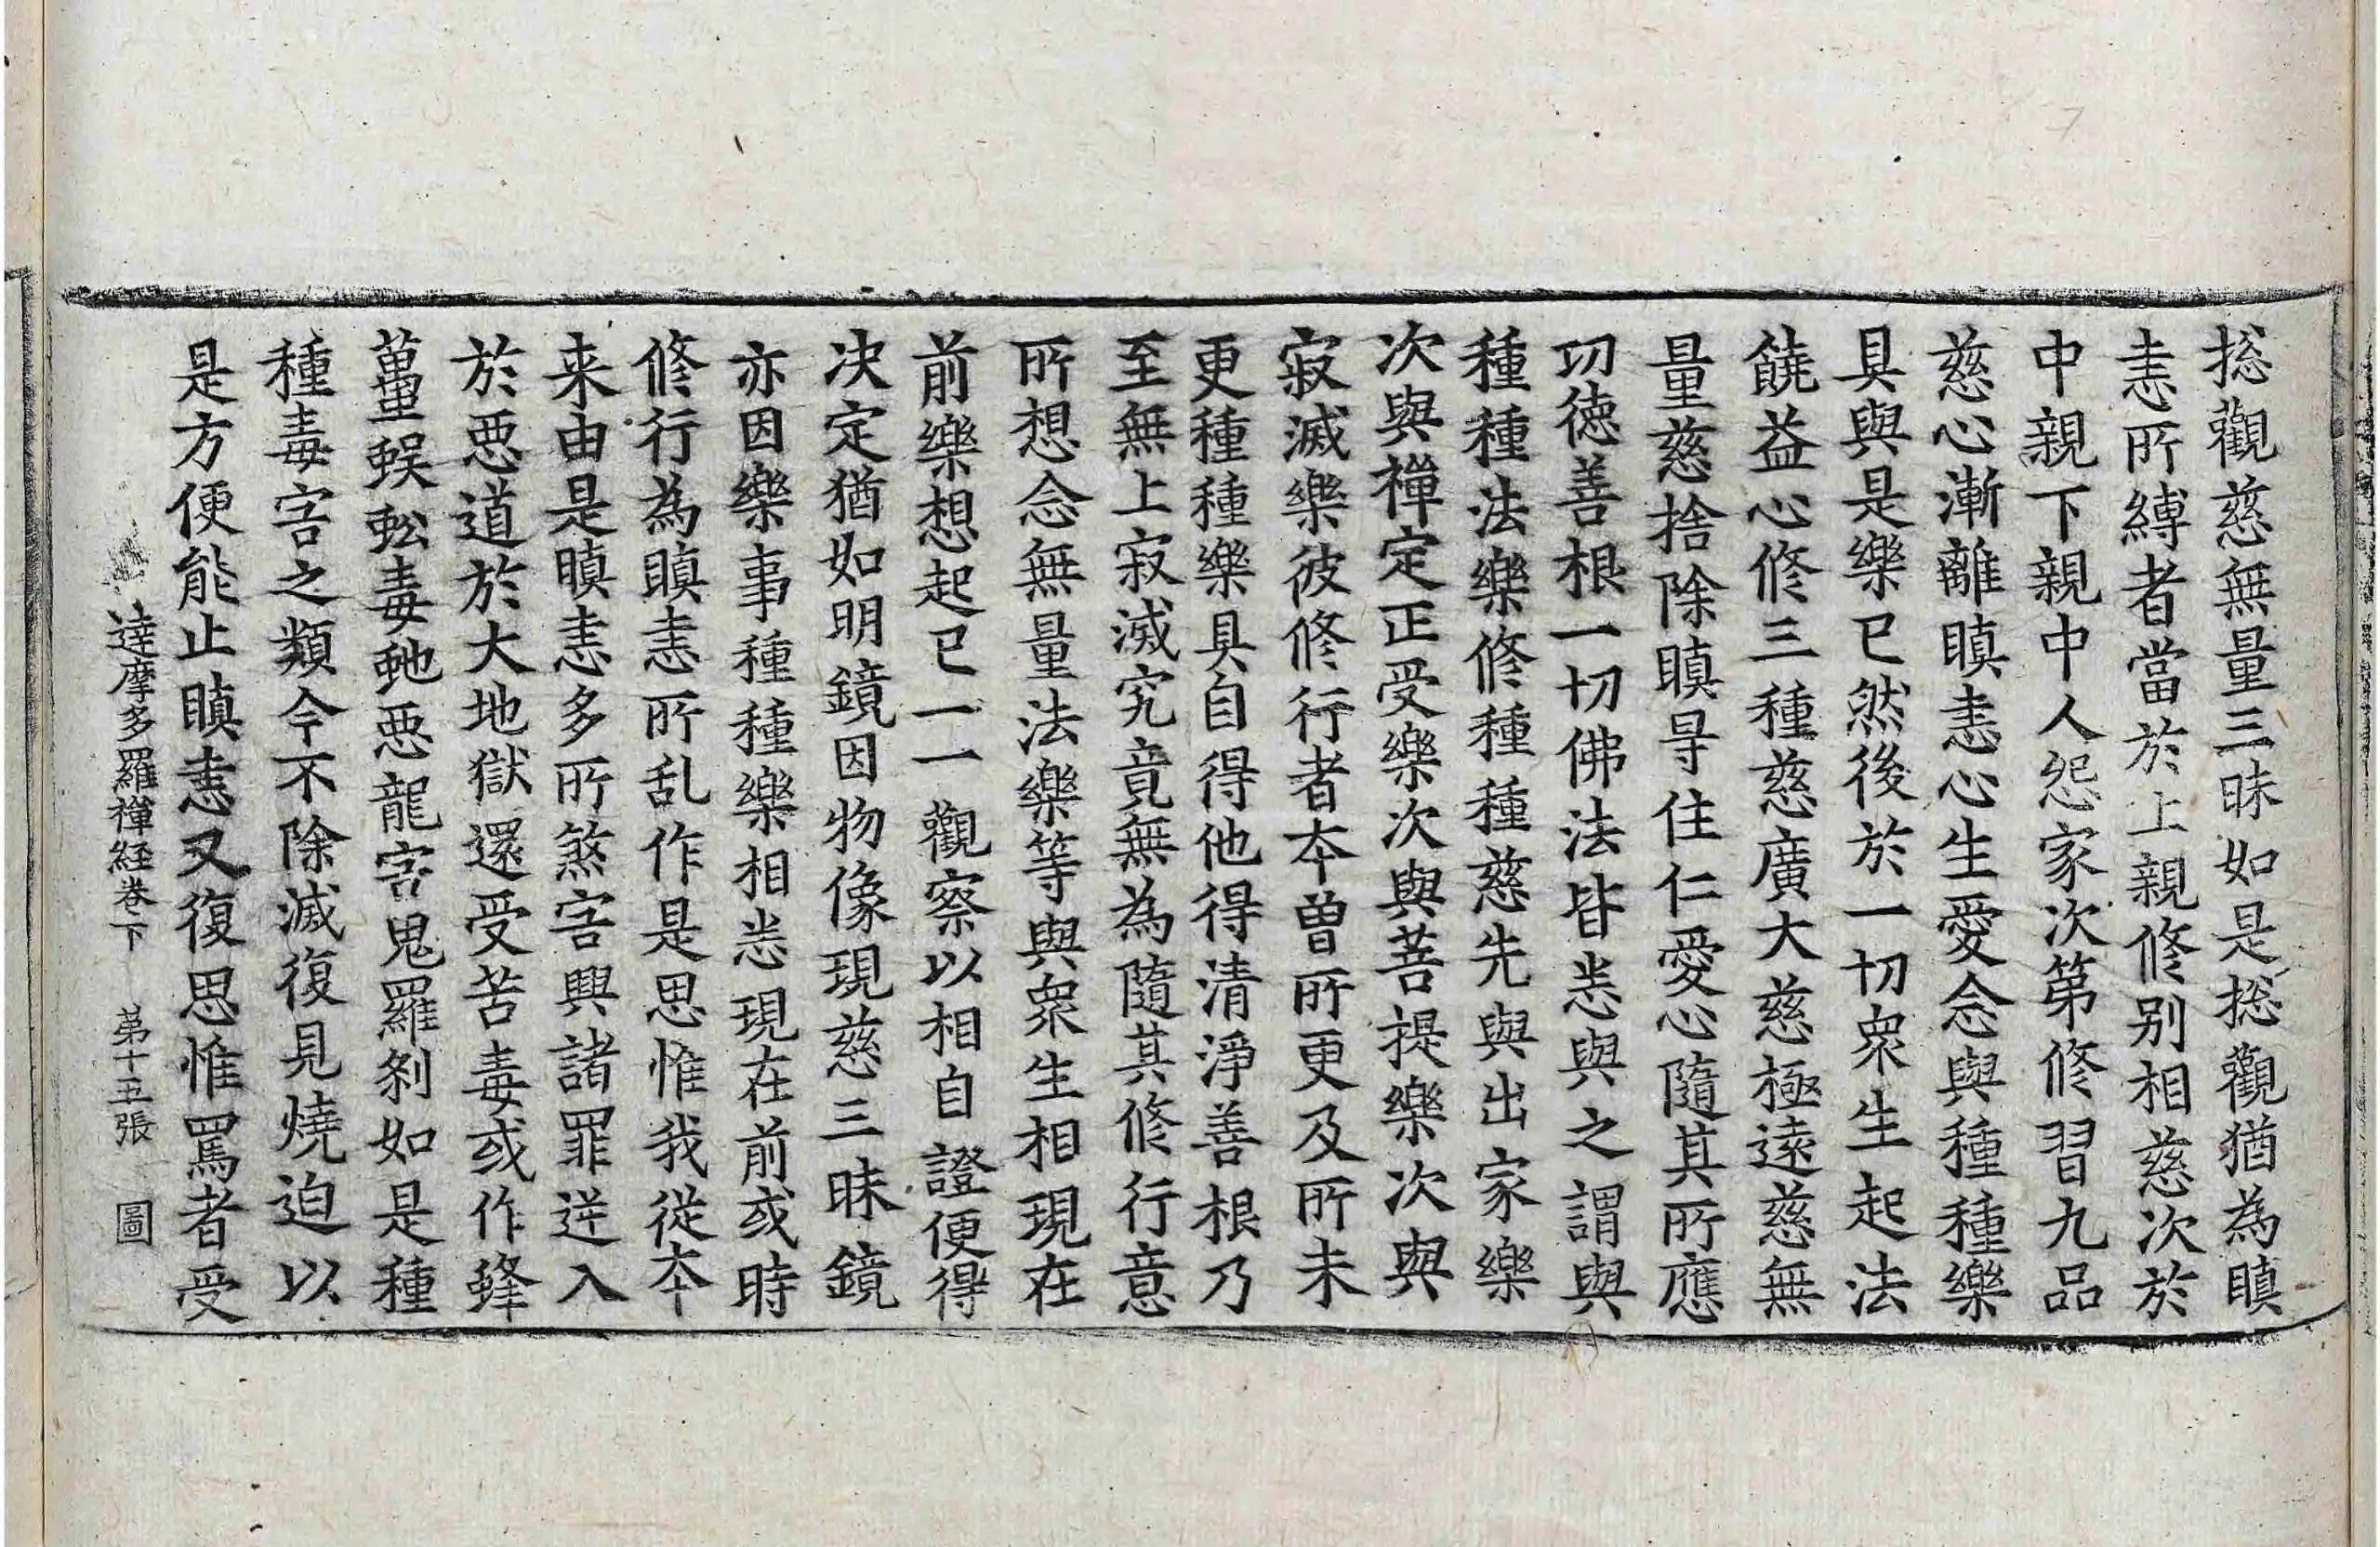 揔觀慈無量三昧如是揔觀猶為瞋
恚所縛者當於上親修别相慈次於
中親下親中人怨家次第修習九品
慈心漸離瞋恚心生愛念與種種樂
具與是樂已然後於一切衆生起法
饒益心修三種慈廣大慈極遠慈無
量慈捨除瞋㝵住仁愛心隨其所應
㓛德善根一切佛法皆悉與之謂與
種種法樂修種種慈先與出家樂
次與禪定正受樂次與菩提樂次與
寂滅樂彼修行者夲曽所更及所未
更種種樂具自得他得清淨善根乃
至無上寂滅究竟無為隨其修行意
所想念無量法樂等與衆生相現在
前樂想起已一一觀察以相自證便得
決定猶如明鏡因物像現慈三昧鏡
亦因樂事種種樂相悉現在前或時
修行為瞋恚所乱作是思惟我從夲
来由是瞋恚多所煞害興諸罪逆入
於惡道於大地獄還受苦毒或作蜂
蠆蜈蚣毒虵惡龍害鬼羅刹如是種
種毒害之類今不除滅復見燒迫以
是方便能止瞋恚又復思惟罵者受
達摩多羅禪経卷下 第十五張 圖